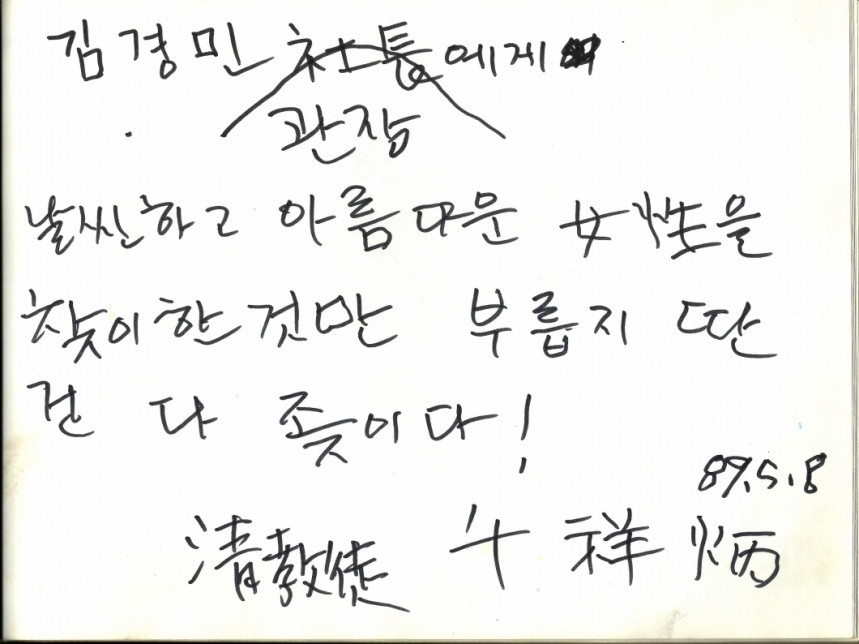 김경민 에게
관장
날씬하고 아름다운 女性을
찾이한것만 부릅지 딴
건 다 좃이다!
89.5.8
清敎徒 千祥炳